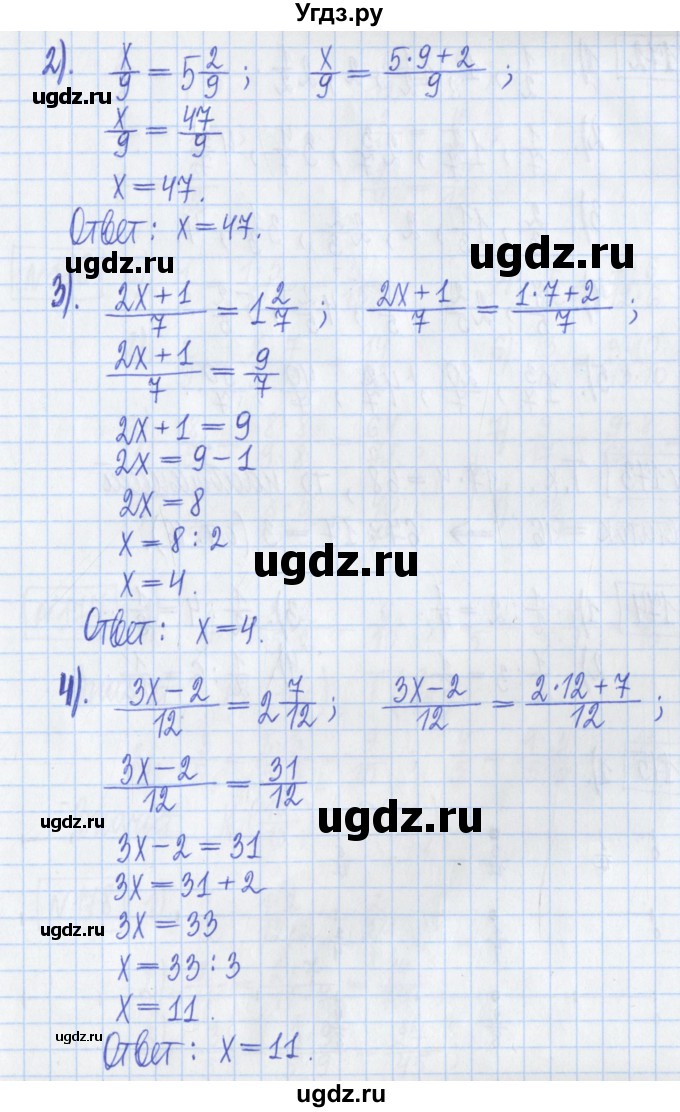 Угдз.ру
2). x/9 = 5 2/9 ; x/9 = (5·9+2)/9 ;
ugdz.ru
x/9 = 47/9
x = 47.
Ответ: x = 47.
ugdz.ru
ugdz.ru
3). (2x+1)/7 = 1 2/7 ; (2x+1)/7 = (1·7+2)/7 ;
(2x+1)/7 = 9/7
2x+1 = 9
2x = 9-1
2x = 8
x = 8:2
ugdz.ru
x = 4.
Ответ: x = 4.
4). (3x-2)/12 = 2 7/12 ; (3x-2)/12 = (2·12+7)/12 ;
(3x-2)/12 = 31/12
ugdz.ru
ugdz.ru
3x-2 = 31
3x = 31+2
3x = 33
ugdz.ru
x = 33:3
x = 11.
ugdz.ru
Ответ: x = 11.
ugdz.ru